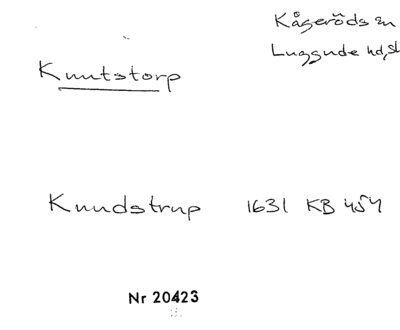 Kågeröds sn
Luggude hd, sk
Knutstorp
Knudstrup 1631 KB 454
Nr 20423